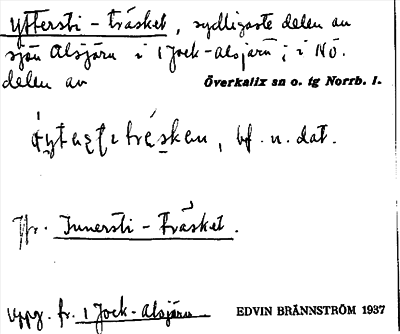 Yttersti-träsket, sydligaste delen av
sjön Alsjärv i 1 Jock-alsjärv; i NÖ.
delen av Överkalix sn o. tg Norrb. l.
träsken, bf. n. dat.
Jfr. Innersti-träsket.
Uppg. fr. 1 Jock-Alsjärv EDVIN BRÄNNSTRÖM 1937